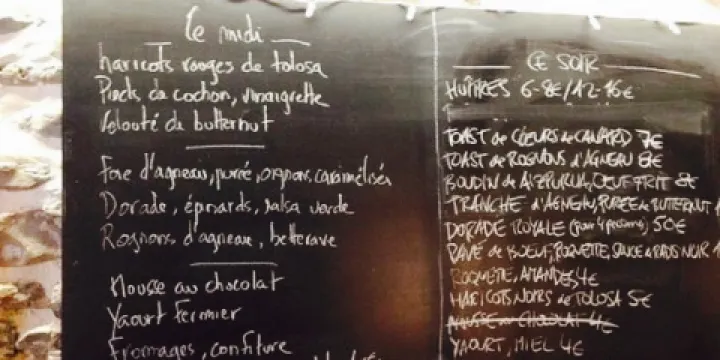 le midi
haricots rouges de tolosa
Pieds de cochon, vinaigrette
Velouté de butternut
Foie d'agneau, purée, oignons caramélisés
Dorade, épinards, salsa verde
Rognons d'agneau, betterave
Mousse au chocolat
Yaourt Fermier
Fromages, confiture
CE SOIR
HUÎTRES 6-8€/12-16€
TOAST de CŒURS de CANARD 7€
TOAST de ROGNONS d'AGNEAU 8€
BOUDIN de AIZPURUA, OEUF FRIT 8€
TRANCHE d'AGNEAU, PUREE de BUTTERNUT
DORADE ROYALE (pour 4 personnes) 50€
PAVÉ de BOEUF, ROQUETTE, SAUCE RADIS NOIR
ROQUETTE, AMANDES 4€
HARICOTS NOIRS de TOLOSA 5€
MOUSSE au CHOCOLAT 4€
YAOURT, MIEL 4€